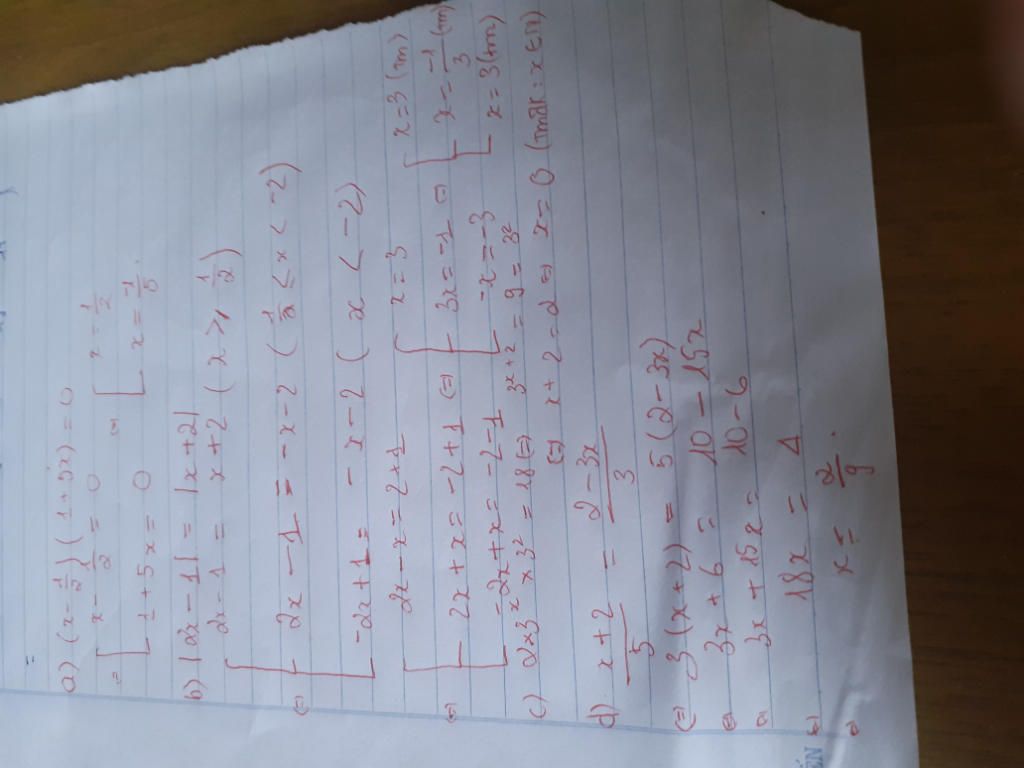 =
a) (x - 1/2)(1 + 5x) = 0
= [ x - 1/2 = 0
[ 1 + 5x = 0 (=) [ x = 1/2 [ x = -1/5.
b) |2x - 1| = |x + 2|
2x - 1 = x + 2 ( x > 1/2 )
(=) [ 2x - 1 = -x - 2 ( 1/2 ≤ x < -2)
-2x + 1 = -x - 2 ( x < -2)
2x - x = 2 + 1 [ x = 3 x = 3 (tm)
(=) [ 2x + x = -2 + 1 (=) [ 3x = -1 (=) [ x = -1/3 (tm)
-2x + x = -2 - 1 [ -x = -3 [ x = 3 (tm)
c) 2 x 3ˣ x 3² = 18 (=) 3ˣ⁺² = 9 = 3²
(=) x + 2 = 2 (=) x = 0 (tmĐK: x ∈ N)
d) (x + 2)/5 = (2 - 3x)/3
(=) 3(x + 2) = 5(2 - 3x)
(=) 3x + 6 = 10 - 15x
(=) 3x + 15x = 10 - 6
(=) 18x = 4
(=) x = 2/9.